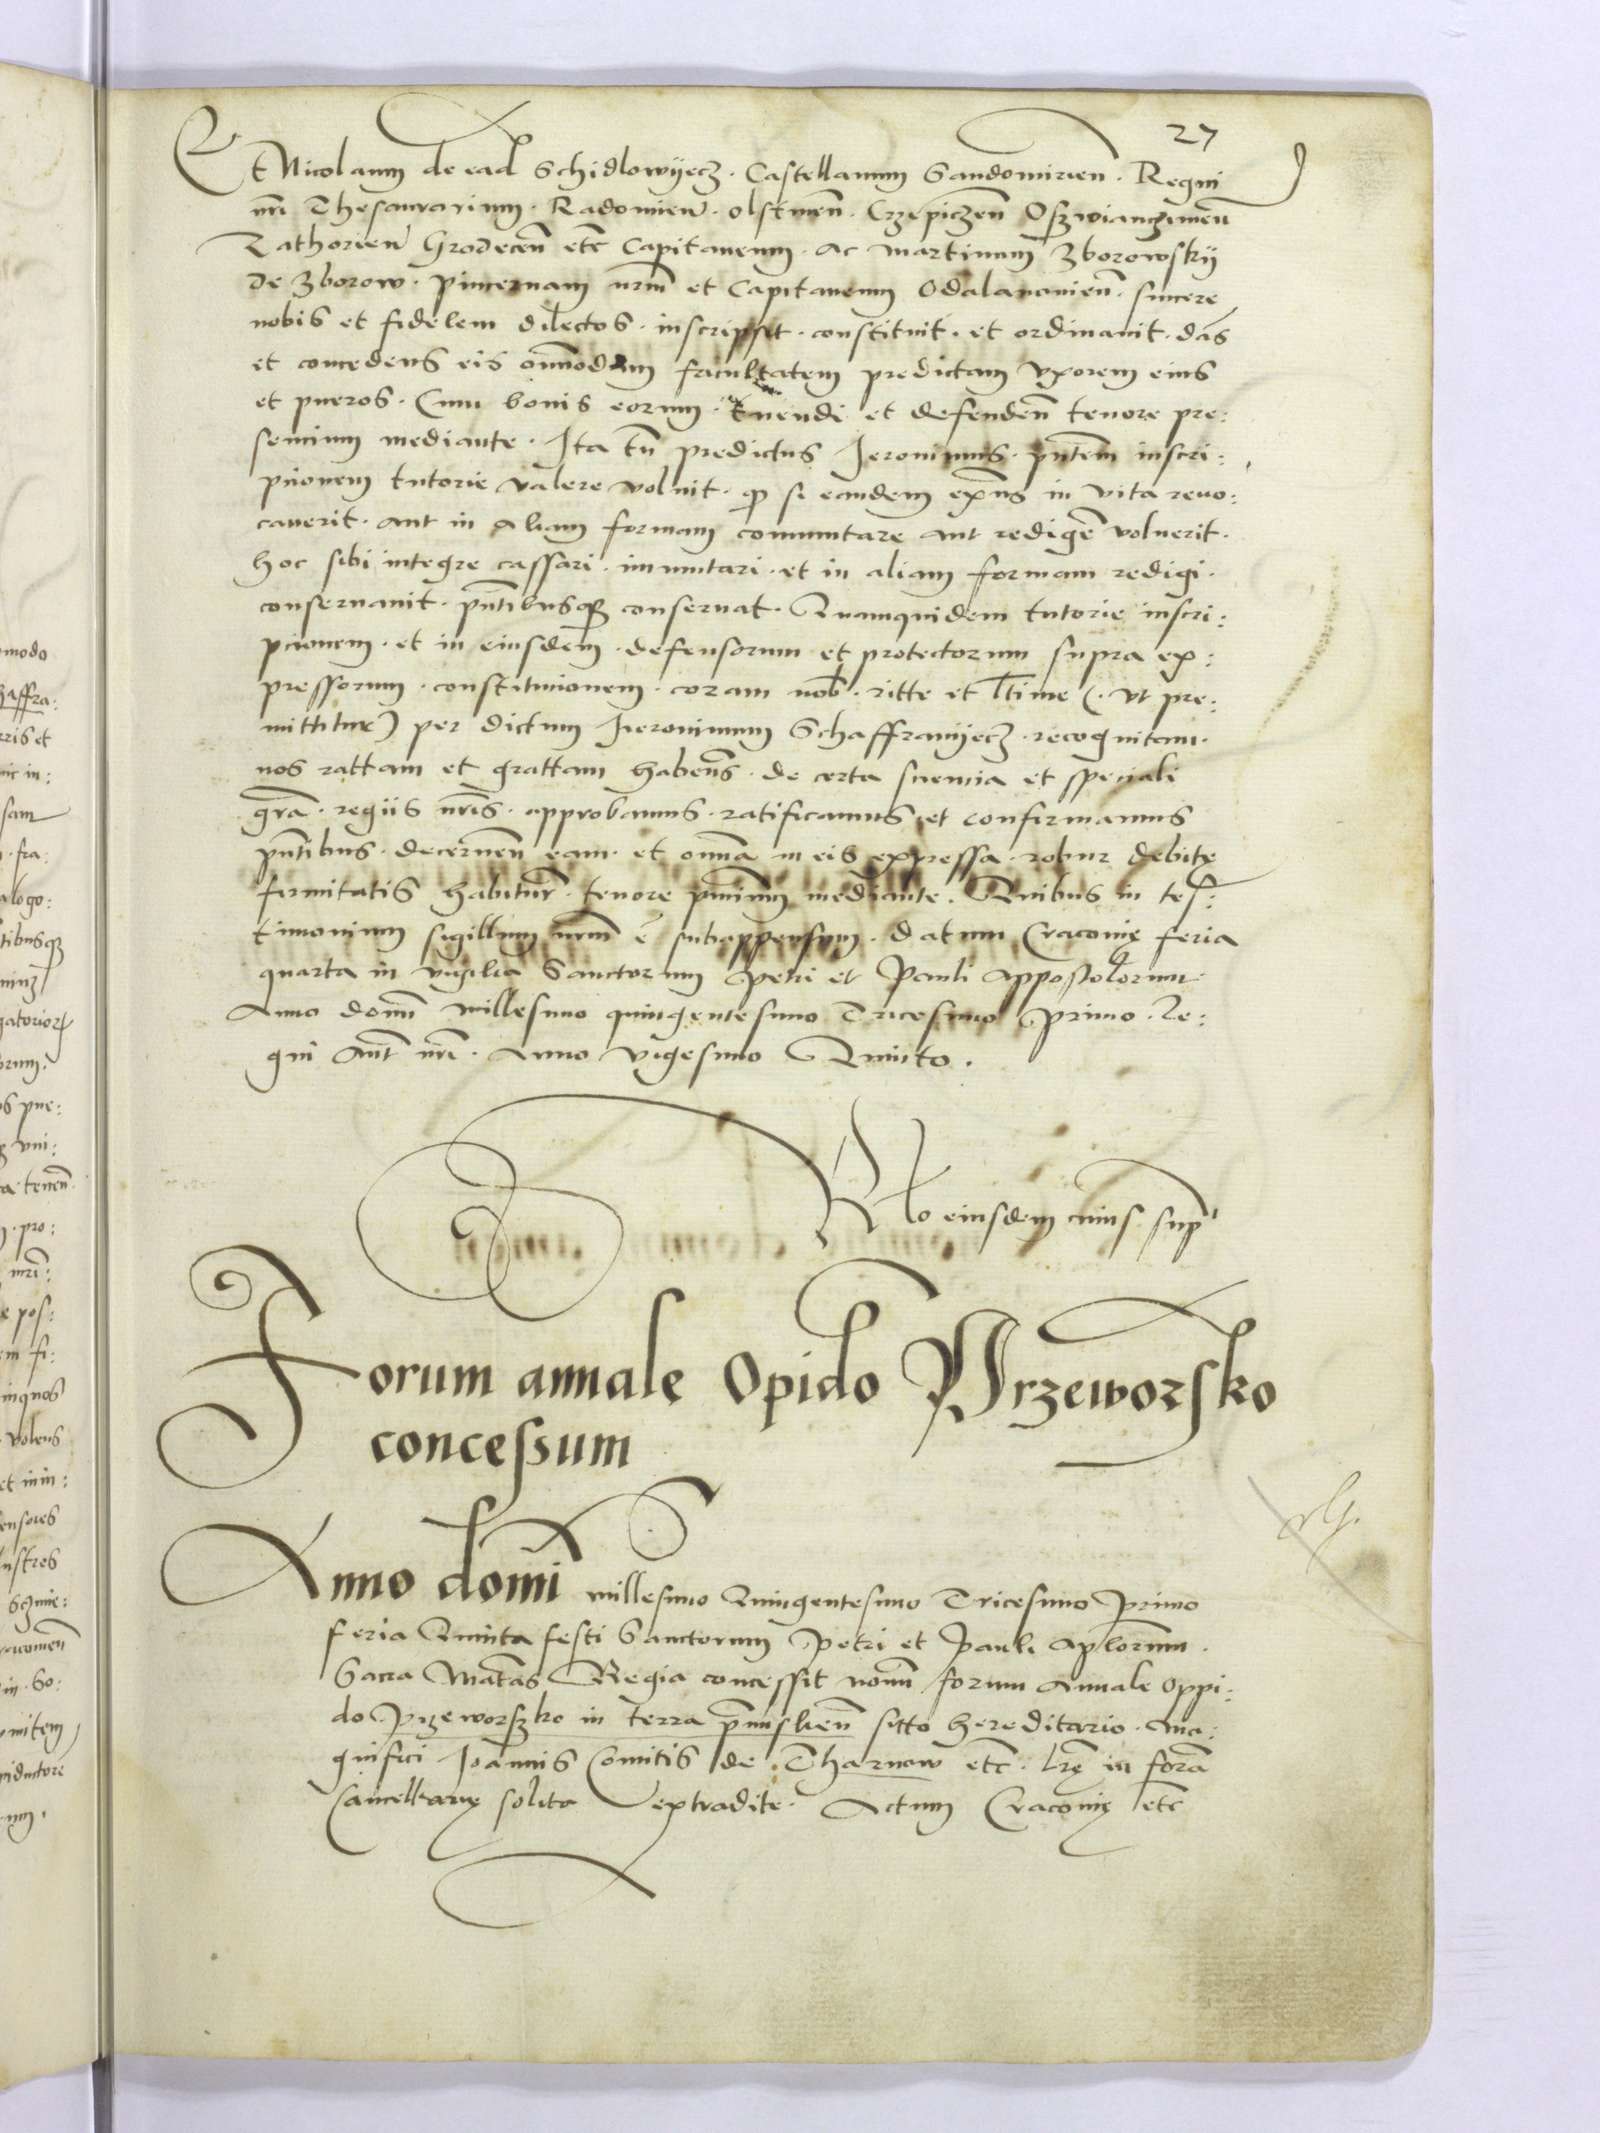 27
Et Nicolaum de ead Schidlowyecz. Castellanum Sandomirien. Regni
nri Thesaurarium. Radomien. olstinen. Crzepiczen Oszwianczimen
Zathorien Grodecen etc Capitaneum. Ac Martinum Zborowsky
de Zborow. Pincernam nrm et Capitaneum Odalanowien. sincere
nobis et fidelem dilectos. inscripsit. constituit. et ordinavit. dās
et concedens eis ōmnodam facultatem predictam uxorem eius
et pueros. Cum bonis eorum. tuendi et defendeñ tenore pre:
sencium mediante. Ita tn̄ predictus Jeronimus. pn̄tem inscri:
ptionem tutorie valere voluit. qp si eandem exn̄s in vita revo:
caverit. aut in aliam formam commutare aut redigē voluerit.
hoc sibi integre cassari. immutari. et in aliam formam redigi.
conservavit. pn̄tibusqz conservat. Quamquidem tutorie inscri:
ptionem. et in eiusdem. defensorum et protectorum supra ex:
pressorum. constitucionem. coram nob. ritte et ltime (. ut pre:
mittitur) per dictum Jeronimum Schaffranyecz. recognitam.
nos rattam et grattam habens. de certa sciencia et speciali
grā. regiis nris. approbamus. ratificamus et confirmamus
pn̄tibus. decernen eam. et omnia in eis expressa. robur debite
firmitatis habitur. tenore pn̄cium mediante. Quibus in tes:
timonium sigillum nrum ē subappensum. datum Cracovię feria
quarta in vigilia Sanctorum Petri et Pauli Appostolorum
Anno domi millesimo quingentesimo Tricesimo Primo. Re:
gni aut nri. Anno vigesimo Quinto.
Rlo eiusdem cuius sup
Forum annale Opido Przeworsko
concessum
Anno domi millesimo Quingentesimo Tricesimo Primo
feria Quinta festi Sanctorum Petri et Pauli Aplorum.
Sacra Matas Regia concessit novum forum Annale Oppi:
do Przeworszko in terra premislien sitto hereditario. Ma:
gnifici Joannis Comitis de Tharnow etc. lrę in forā
Cancellarię solita extradite. Actum Cracovię etc